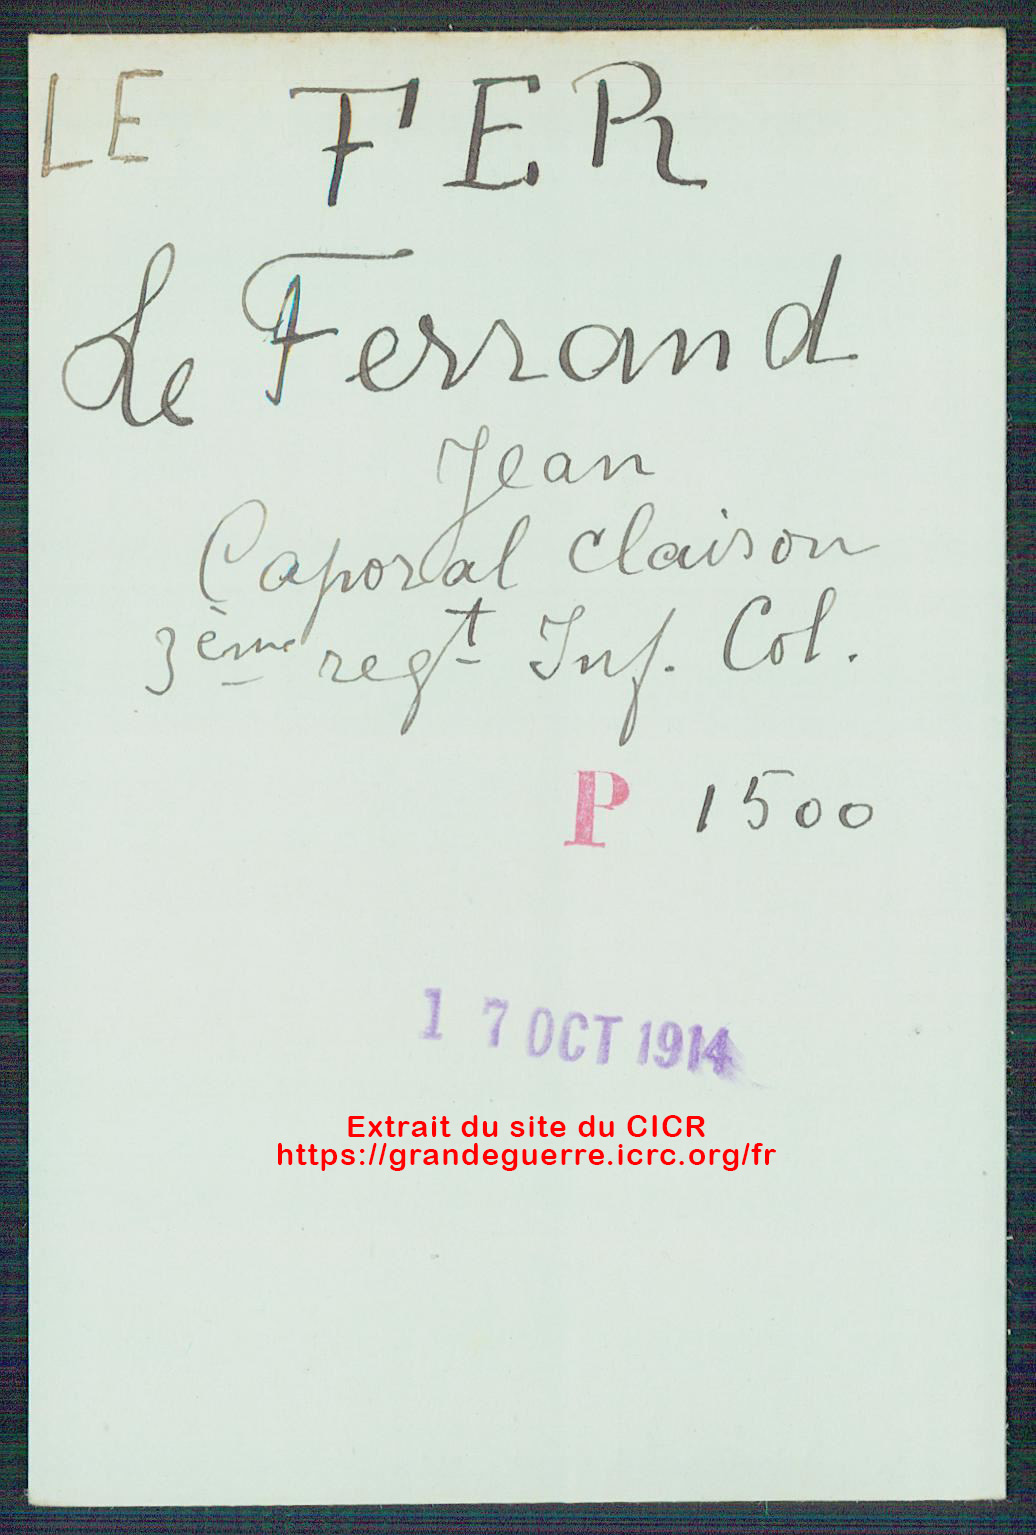 LE FER
Le Ferrand
Jean
Caporal clairon
3ème regt Inf. Col.
P 1500
17 OCT 1914
Extrait du site du CICR
https://grandeguerre.icrc.org/fr